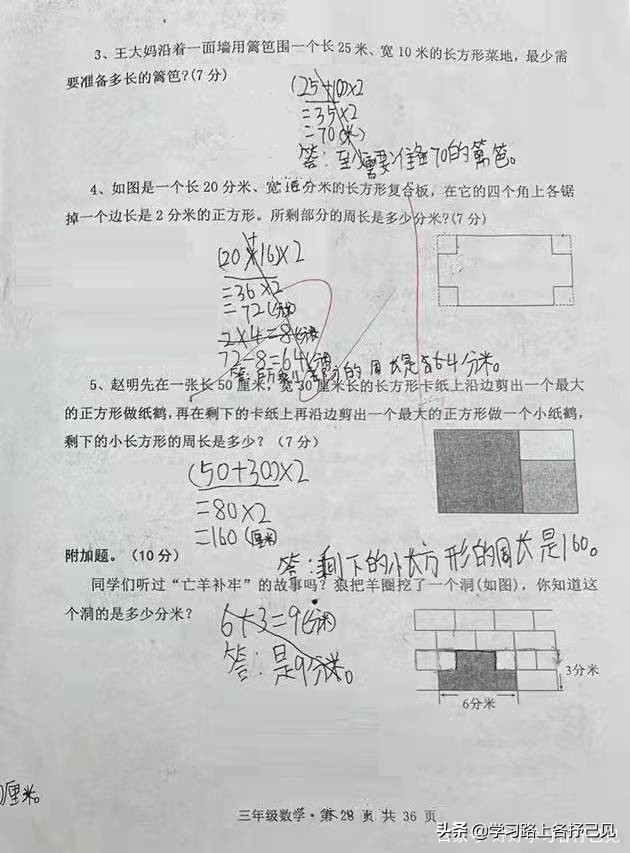 3、王大妈沿着一面墙用篱笆围一个长25米、宽10米的长方形菜地，最少需
要准备多长的篱笆?(7分)
(25+10)×2
=35×2
=70(米)
答：至少需要准备70的篱笆。
4、如图是一个长20分米、宽16分米的长方形复合板，在它的四个角上各锯
掉一个边长是2分米的正方形。所剩部分的周长是多少分米?(7分)
(20+16)×2
=36×2
=72(分米)
2×4=8(分米)
72-8=64(分米)
的周长是64分米。
5、赵明先在一张长50厘米，宽30厘米长的长方形卡纸上沿边剪出一个最大
的正方形做纸鹤，再在剩下的卡纸上再沿边剪出一个最大的正方形做一个小纸鹤，
剩下的小长方形的周长是多少？（7分）
(50+30)×2
=80×2
=160(厘米)
答：剩下的小长方形的周长是160。
附加题。（10分）
同学们听过“亡羊补牢”的故事吗？狼把羊圈挖了一个洞(如图)，你知道这
个洞的是多少分米？
6+3=9(分米)
答：是9分米。
3分米
6分米
厘米。
三年级数学·第28页共36页
头条@学习路上各抒己见